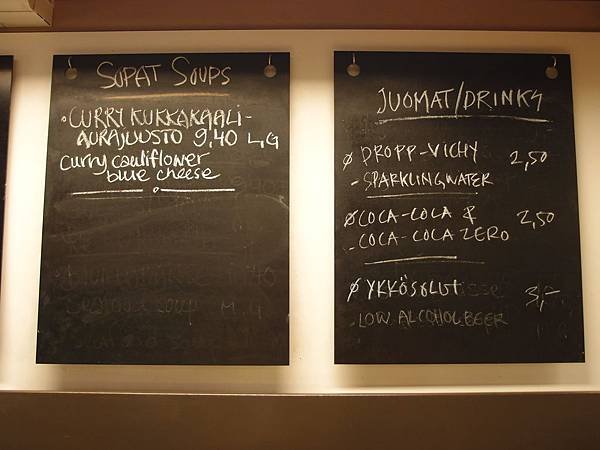 SOPAT SOUPS
• CURRY KUKKAKAALI-
AURAJUUSTO 9,40 L,G
curry cauliflower
blue cheese
JUOMAT/DRINKS
Ø DROPP-VICHY 2,50
- SPARKLING WATER
Ø COCA-COLA &
- COCA-COLA ZERO 2,50
Ø YKKÖSOLUT 3,-
- LOW ALCOHOL BEER